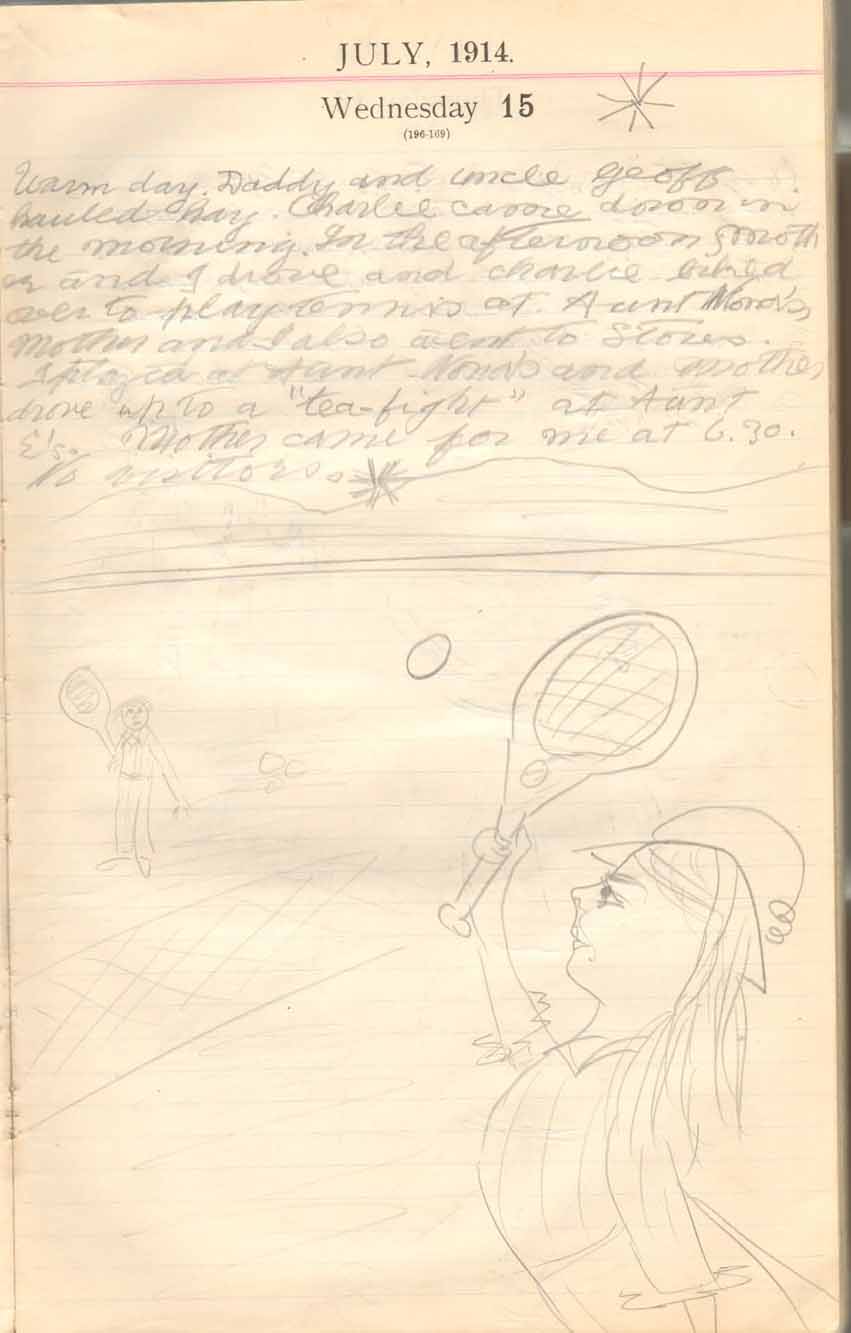 JULY, 1914.
Wednesday 15
(196-169)
Warm day. Daddy and uncle Geoff
hauled hay. Charlie came down in
the morning. In the afternoon Moth
er and I drove and charlie biked
over to play tennis at Aunt Nora's,
Mother and I also went to Stores.
I played at Aunt Nora's and mother
drove up to a "tea-fight" at Aunt
E's. Mother came for me at 6.30.
No visitors.